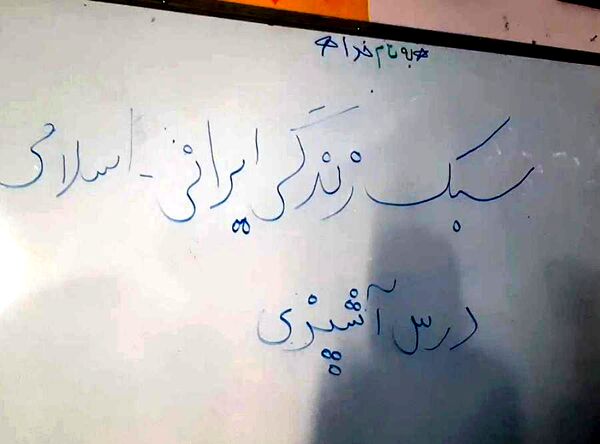 *به نام خدا*
سبک زندگی ایرانی - اسلامی
درس آشپزی